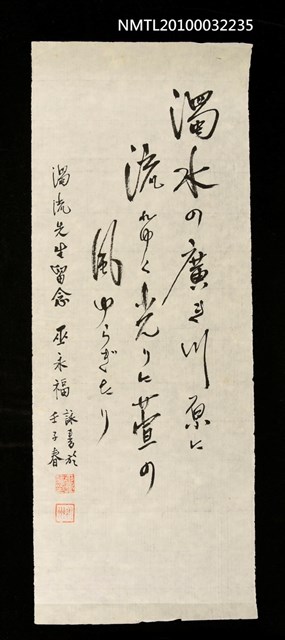 NMTL20100032235
濁水の廣き川原に
流れゆく光りに萱の
風ゆらぎたり
濁流先生留念 巫永福 詠書於
壬子春